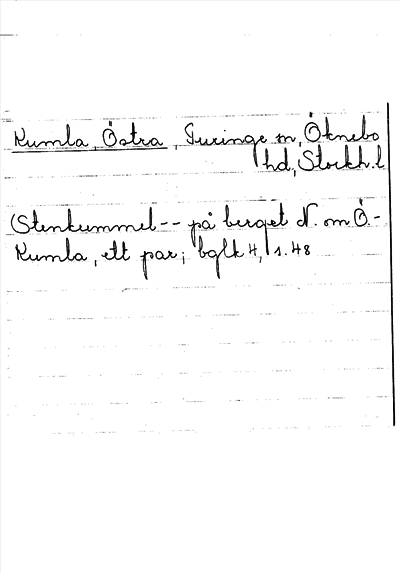 Kumla, Östra, Turinge sn, Öknebo
hd, Stockh. l
(Stenkummel -- på berget N. om Ö.-
Kumla, ett par; bglk 4, s. 48